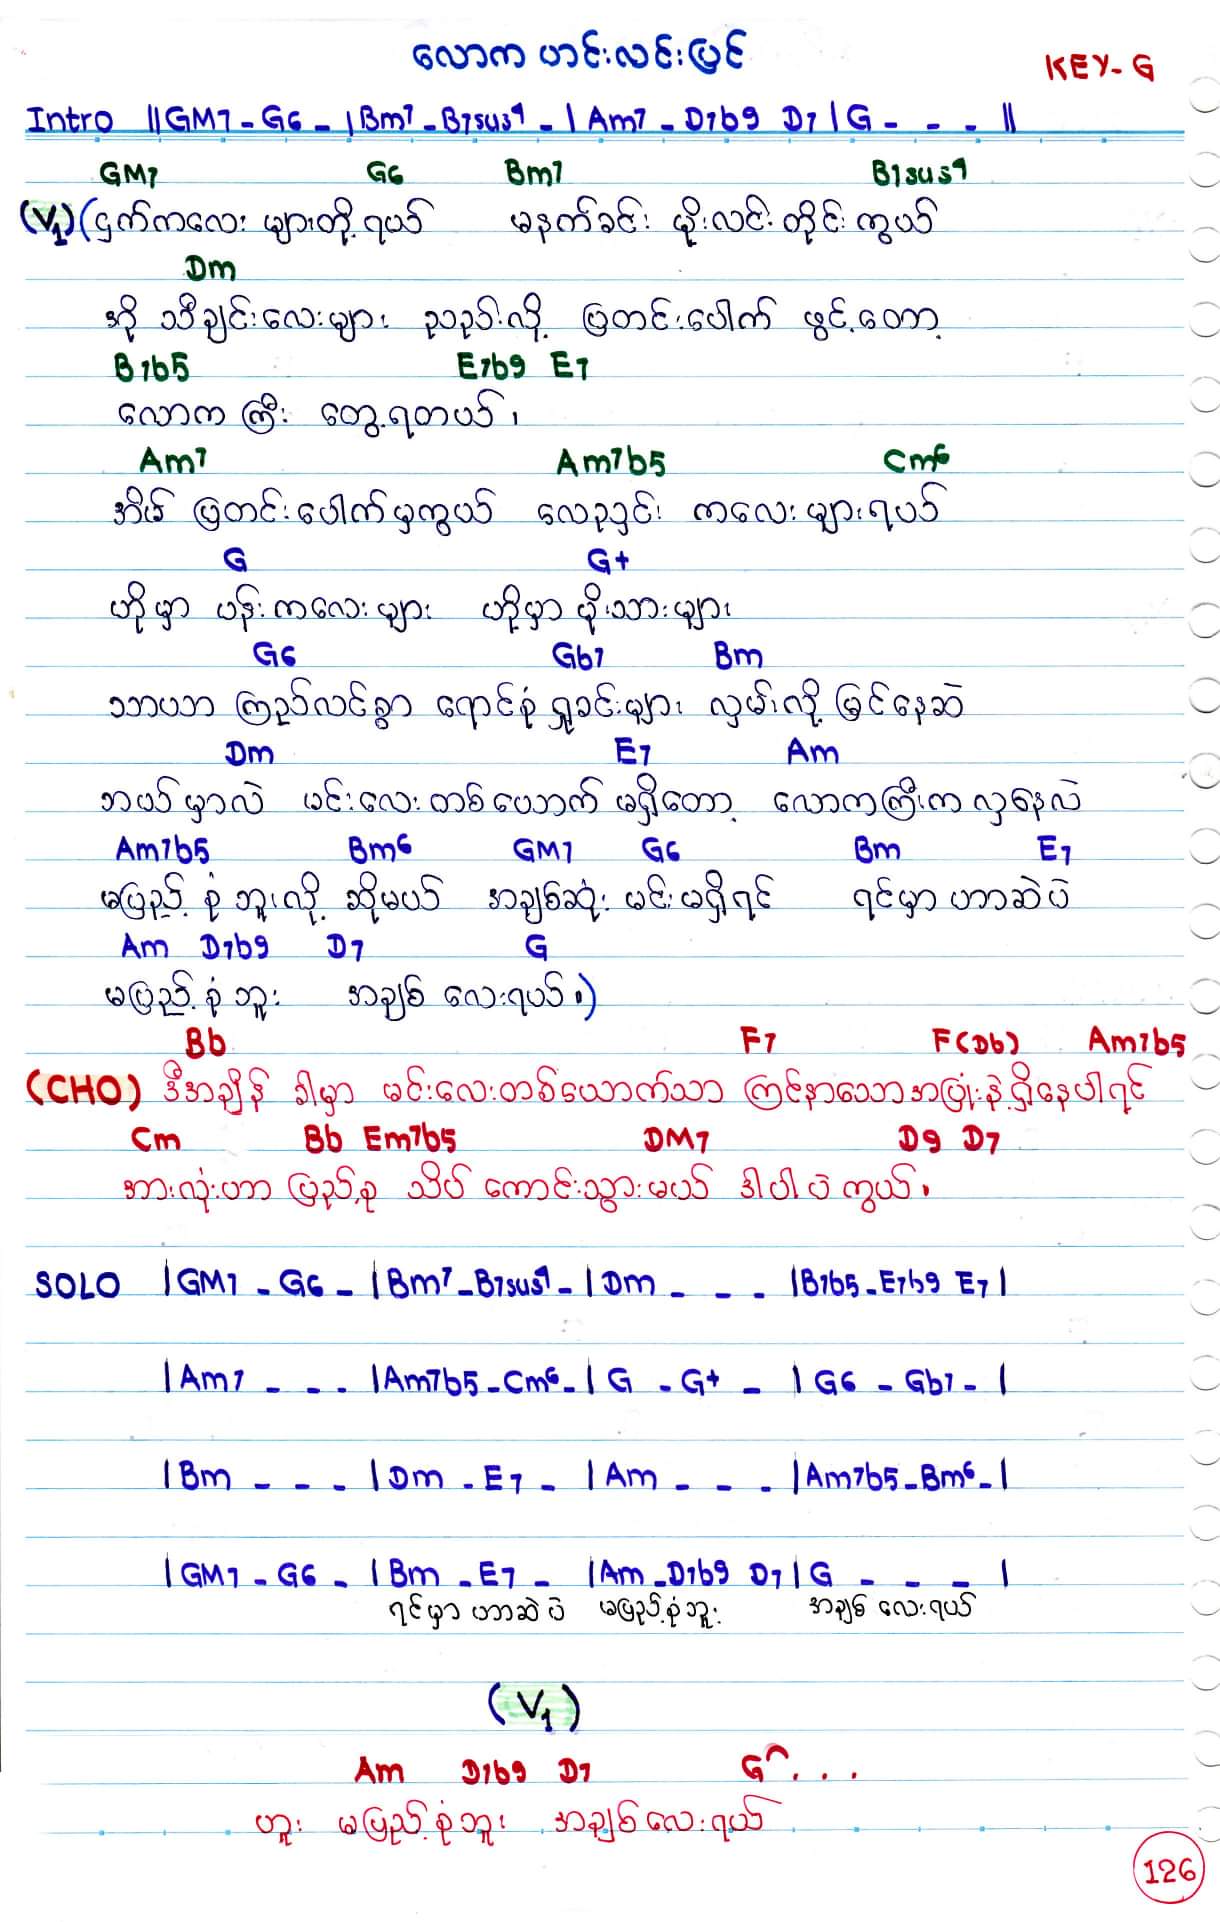 လောက ဟင်းလင်းပြင်
KEY-G
Intro ||GM7 - G6 - |Bm7 - B7sus4 - | Am7 - D7b9 D7 | G - - - ||
GM7 G6 Bm7 B7sus4
(V1) (ငှက်ကလေး များတို့ရယ် မနက်ခင်း မိုးလင်းတိုင်းကွယ်
Dm
အို သီချင်းလေးများ ညည်းလို့ ပြတင်းပေါက် ဖွင့်တော့
B7b5 E7b9 E7
လောကကြီး တွေ့ရတယ်၊
Am7 Am7b5 Cm6
အိမ် ပြတင်းပေါက်မှကွယ် လေညှင်း ကလေးများရယ်
G G+
ဟိုမှာ ပန်းကလေးများ ဟိုမှာ မိုးသားများ
G6 Gb7 Bm
သာယာ ကြည်လင်စွာ ရောင်စုံ ရှုခင်းများ လှမ်းလို့ မြင်နေဆဲ
Dm E7 Am
ဘယ်မှာလဲ မင်းလေးတစ်ယောက် မရှိတော့ လောကကြီးက လှနေလဲ
Am7b5 Bm6 GM7 G6 Bm E7
မပြည့်စုံဘူးလို့ ဆိုမယ် အချစ်ဆုံး မင်းမရှိရင် ရင်မှာ ဟာဆဲပဲ
Am D7b9 D7 G
မပြည့်စုံဘူး အချစ်လေးရယ်။)
Bb F7 F(Db) Am7b5
(CHO) ဒီအချိန် ခါမှာ မင်းလေးတစ်ယောက်သာ ကြင်နာသောအပြုံးနဲ့ရှိနေပါရင်
Cm Bb Em7b5 DM7 D9 D7
အားလုံးဟာ ပြည့်စုံ သိပ် ကောင်းသွားမယ် ဒါပါပဲကွယ်။
SOLO |GM7 - G6 - |Bm7 - B7sus4 - | Dm - - - |B7b5 - E7b9 E7 |
|Am7 - - - |Am7b5 - Cm6 - | G - G+ - | G6 - Gb7 - |
|Bm - - - |Dm - E7 - |Am - - - |Am7b5 - Bm6 - |
|GM7 - G6 - | Bm - E7 - |Am - D7b9 D7 | G - - - |
ရင်မှာ ဟာဆဲပဲ မပြည့်စုံဘူး အချစ်လေးရယ်
(V1)
Am D7b9 D7 G . . .
ဟူး မပြည့်စုံဘူး အချစ်လေးရယ်
126